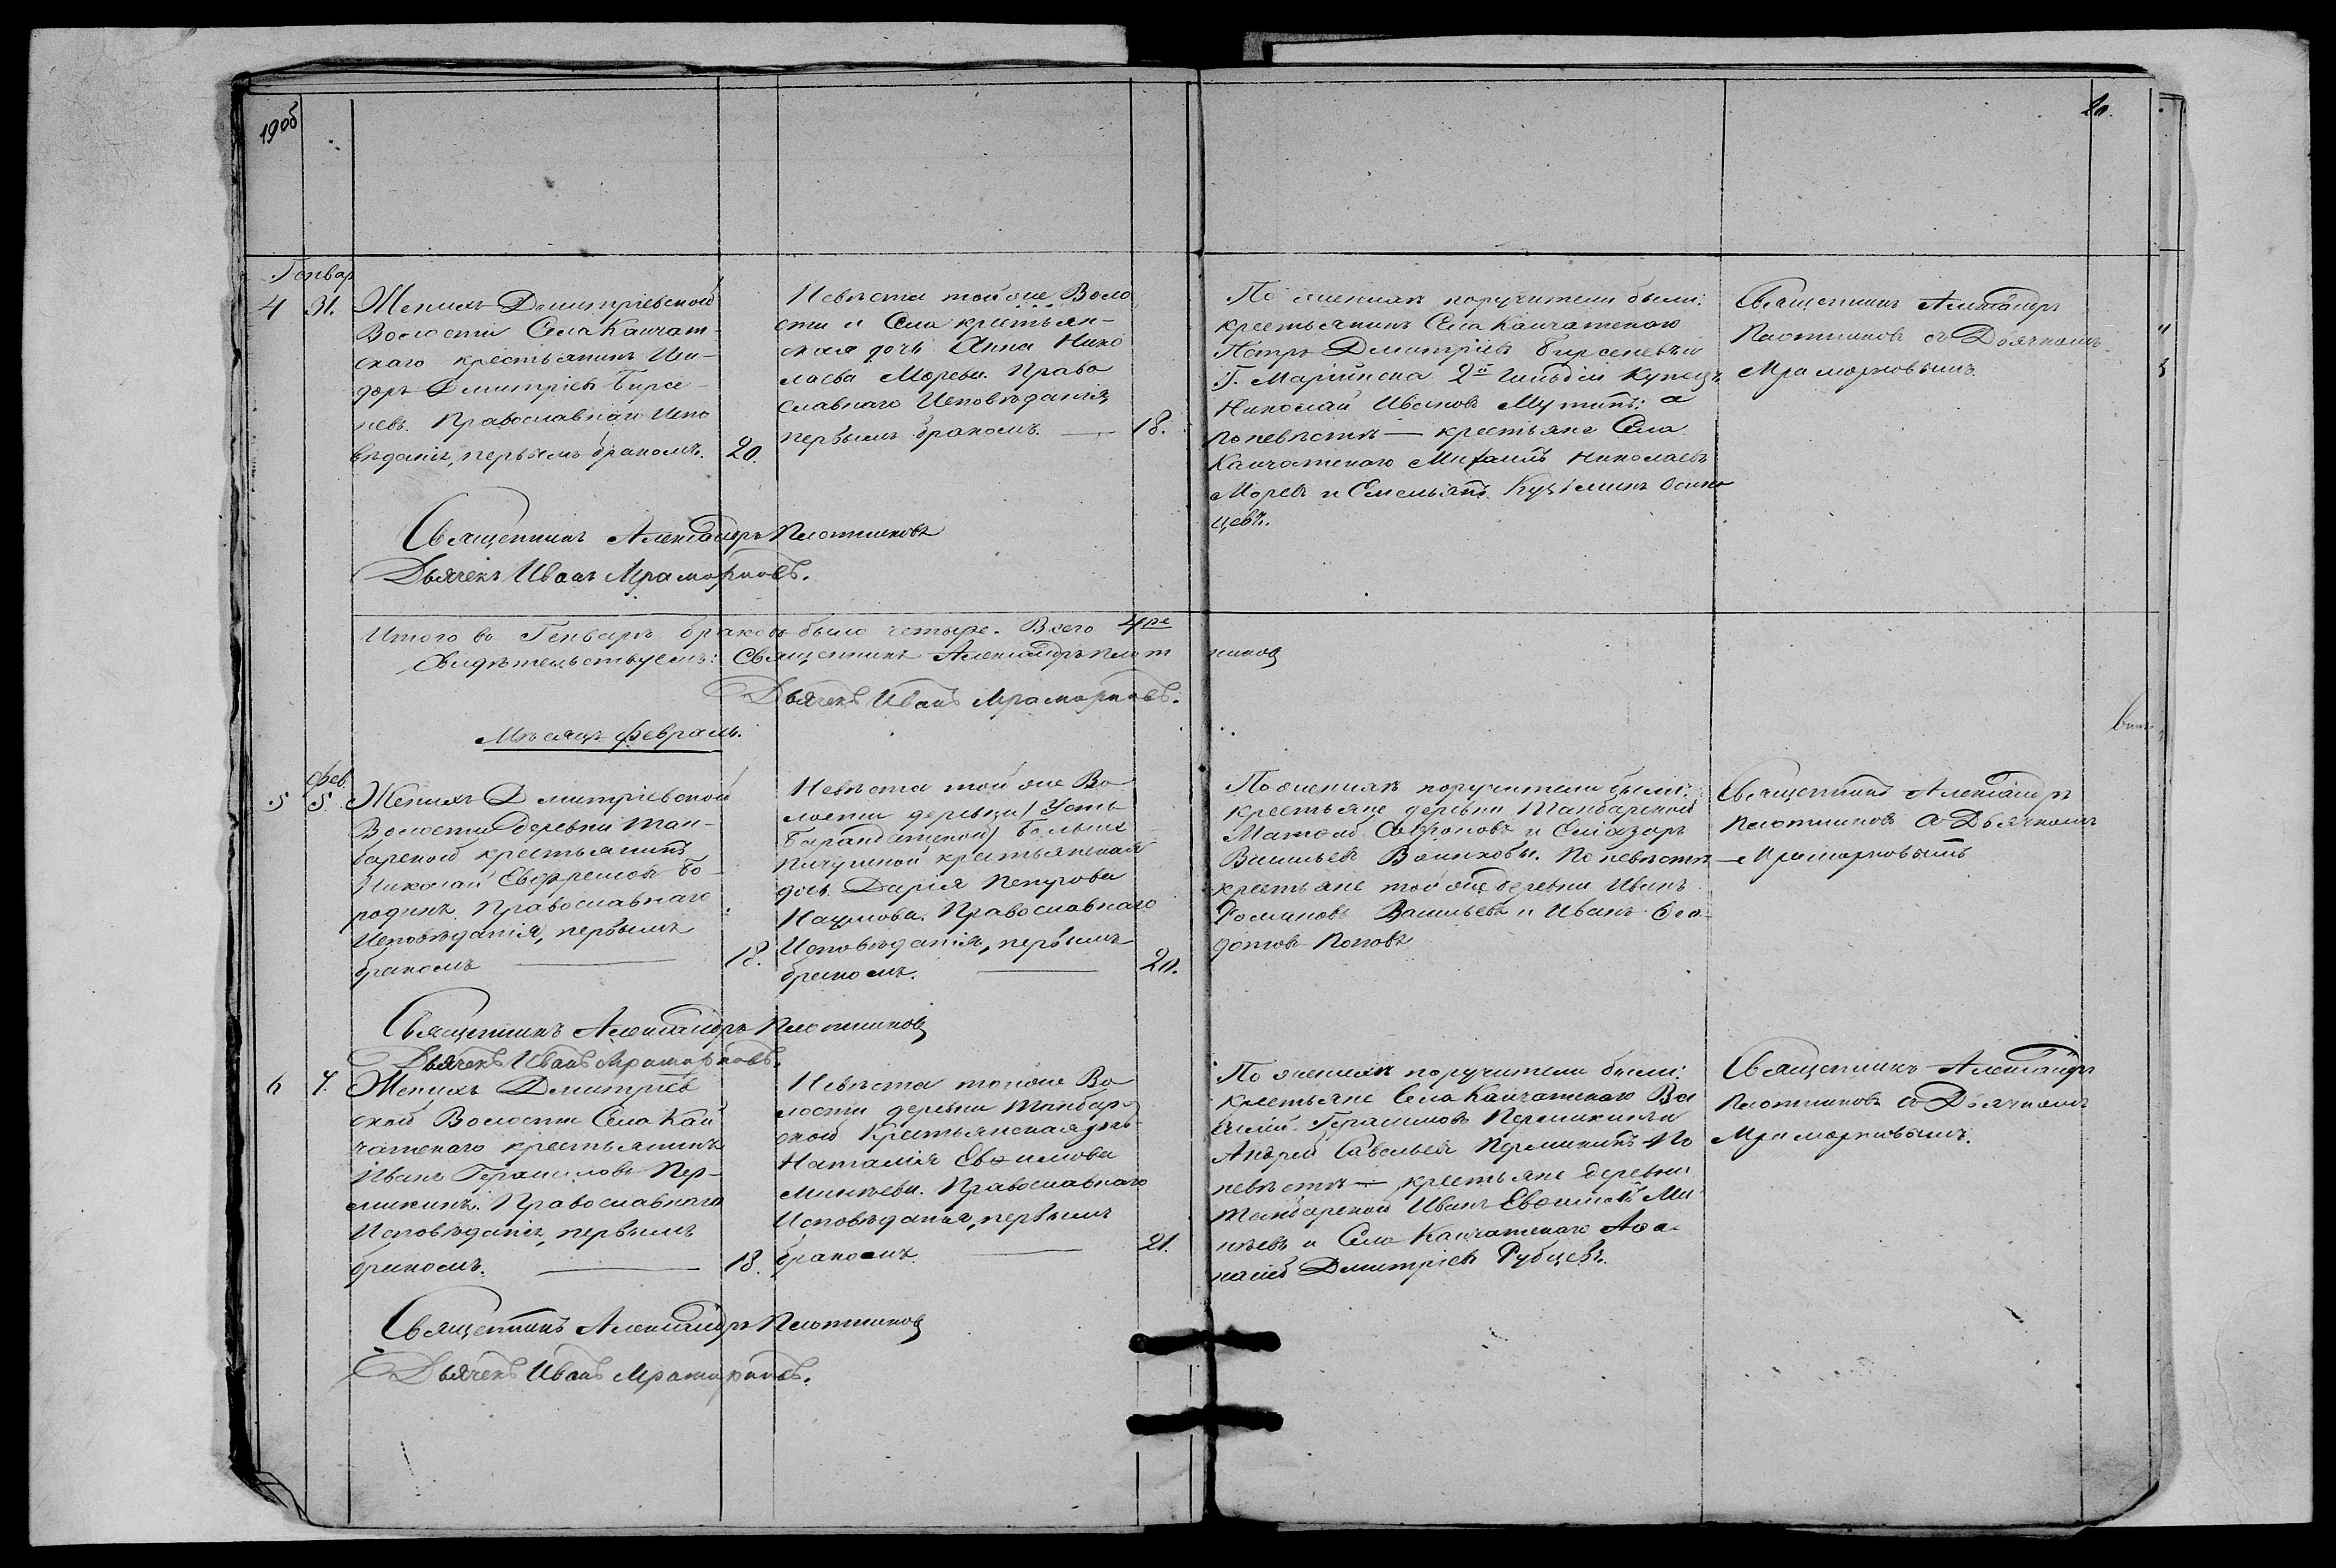 19об
20.
Генвар
4
31.
Женихъ Дмитріевской
Волости Села Каичат-
скаго крестьянинъ Иси-
доръ Дмитріевъ Бирсе-
невъ. Православнаго Испо
вѣданія, первымъ бракомъ.
20.
Невѣста той же Воло
сти и Села крестьян-
ская дочь Анна Нико
лаева Морева. Право
славнаго Исповѣданія,
первымъ бракомъ. —
18.
По женихѣ поручители были:
крестьянинъ Села Каичатскаго
Петръ Дмитріевъ Бирсеневъ и
Г. Маріинска 2й гильдіи купецъ
Николай Ивановъ Мутинъ; а
по невѣстѣ — крестьяне Села
Каичатскаго Михаилъ Николаевъ
Моревъ и Емельянъ Кузьминъ
цевъ.
Священникъ Александръ
Плотниковъ съ Дьячкомъ
Мраморновымъ.
Священникъ Александръ Плотниковъ
Дьячекъ Иванъ Мраморновъ.
Итого въ Генварѣ браковъ было четыре. Всего 4ре
Свидѣтельствуемъ: Священникъ Александръ Плотниковъ
Дьячекъ Иванъ Мраморновъ.
Мѣсяцъ Февраль.
Фев.
5
5.
Женихъ Дмитріевской
Волости деревни Тан-
барской крестьянинъ
Николай Евфремовъ Бо-
родинъ. Православнаго
Исповѣданія, первымъ
бракомъ —
18.
Невѣста той же Во
лости деревни Усть
Барандатской) Больше
Пичугиной крестьянская
дочь Дарія
Наумова. Православнаго
Исповѣданія, первымъ
бракомъ. —
20.
По женихѣ поручители были:
крестьяне деревни Танбарской
Матвей Софроновъ и Елиазаръ
Васильевъ Воинковы. По невѣстѣ
крестьяне той же деревни Иванъ
Романовъ Васильевъ и Иванъ Ѳео-
дотовъ Поповъ
Священникъ Александръ
Плотниковъ съ Дьячкомъ
Мраморновымъ
Священникъ Александръ Плотниковъ
Дьячекъ Иванъ Мраморновъ.
6
7.
Женихъ Дмитріев
ской Волости Села Каи
чатскаго крестьянинъ
Иванъ Герасимовъ Пер-
микинъ. Православнаго
Исповѣданія, первымъ
бракомъ. —
18.
Невѣста тойже Во
лости деревни Танбар-
ской Крестьянская дочь
Наталія Евѳимова
Минѣева. Православнаго
Исповѣданія, первымъ
бракомъ. —
21.
По женихѣ поручители были:
крестьяне Села Каичатскаго Ва
силій Герасимовъ Пермикинъ и
Андрей Савельевъ Пермикинъ. По
невѣстѣ — крестьяне деревни
Танбарской Иванъ Евѳимовъ Ми
нѣевъ и Села Каичатскаго Аѳа-
насій Дмитріевъ Рубцевъ.
Священникъ Александръ
Плотниковъ съ Дьячкомъ
Мраморновымъ.
Священникъ Александръ Плотниковъ
Дьячекъ Иванъ Мраморновъ.